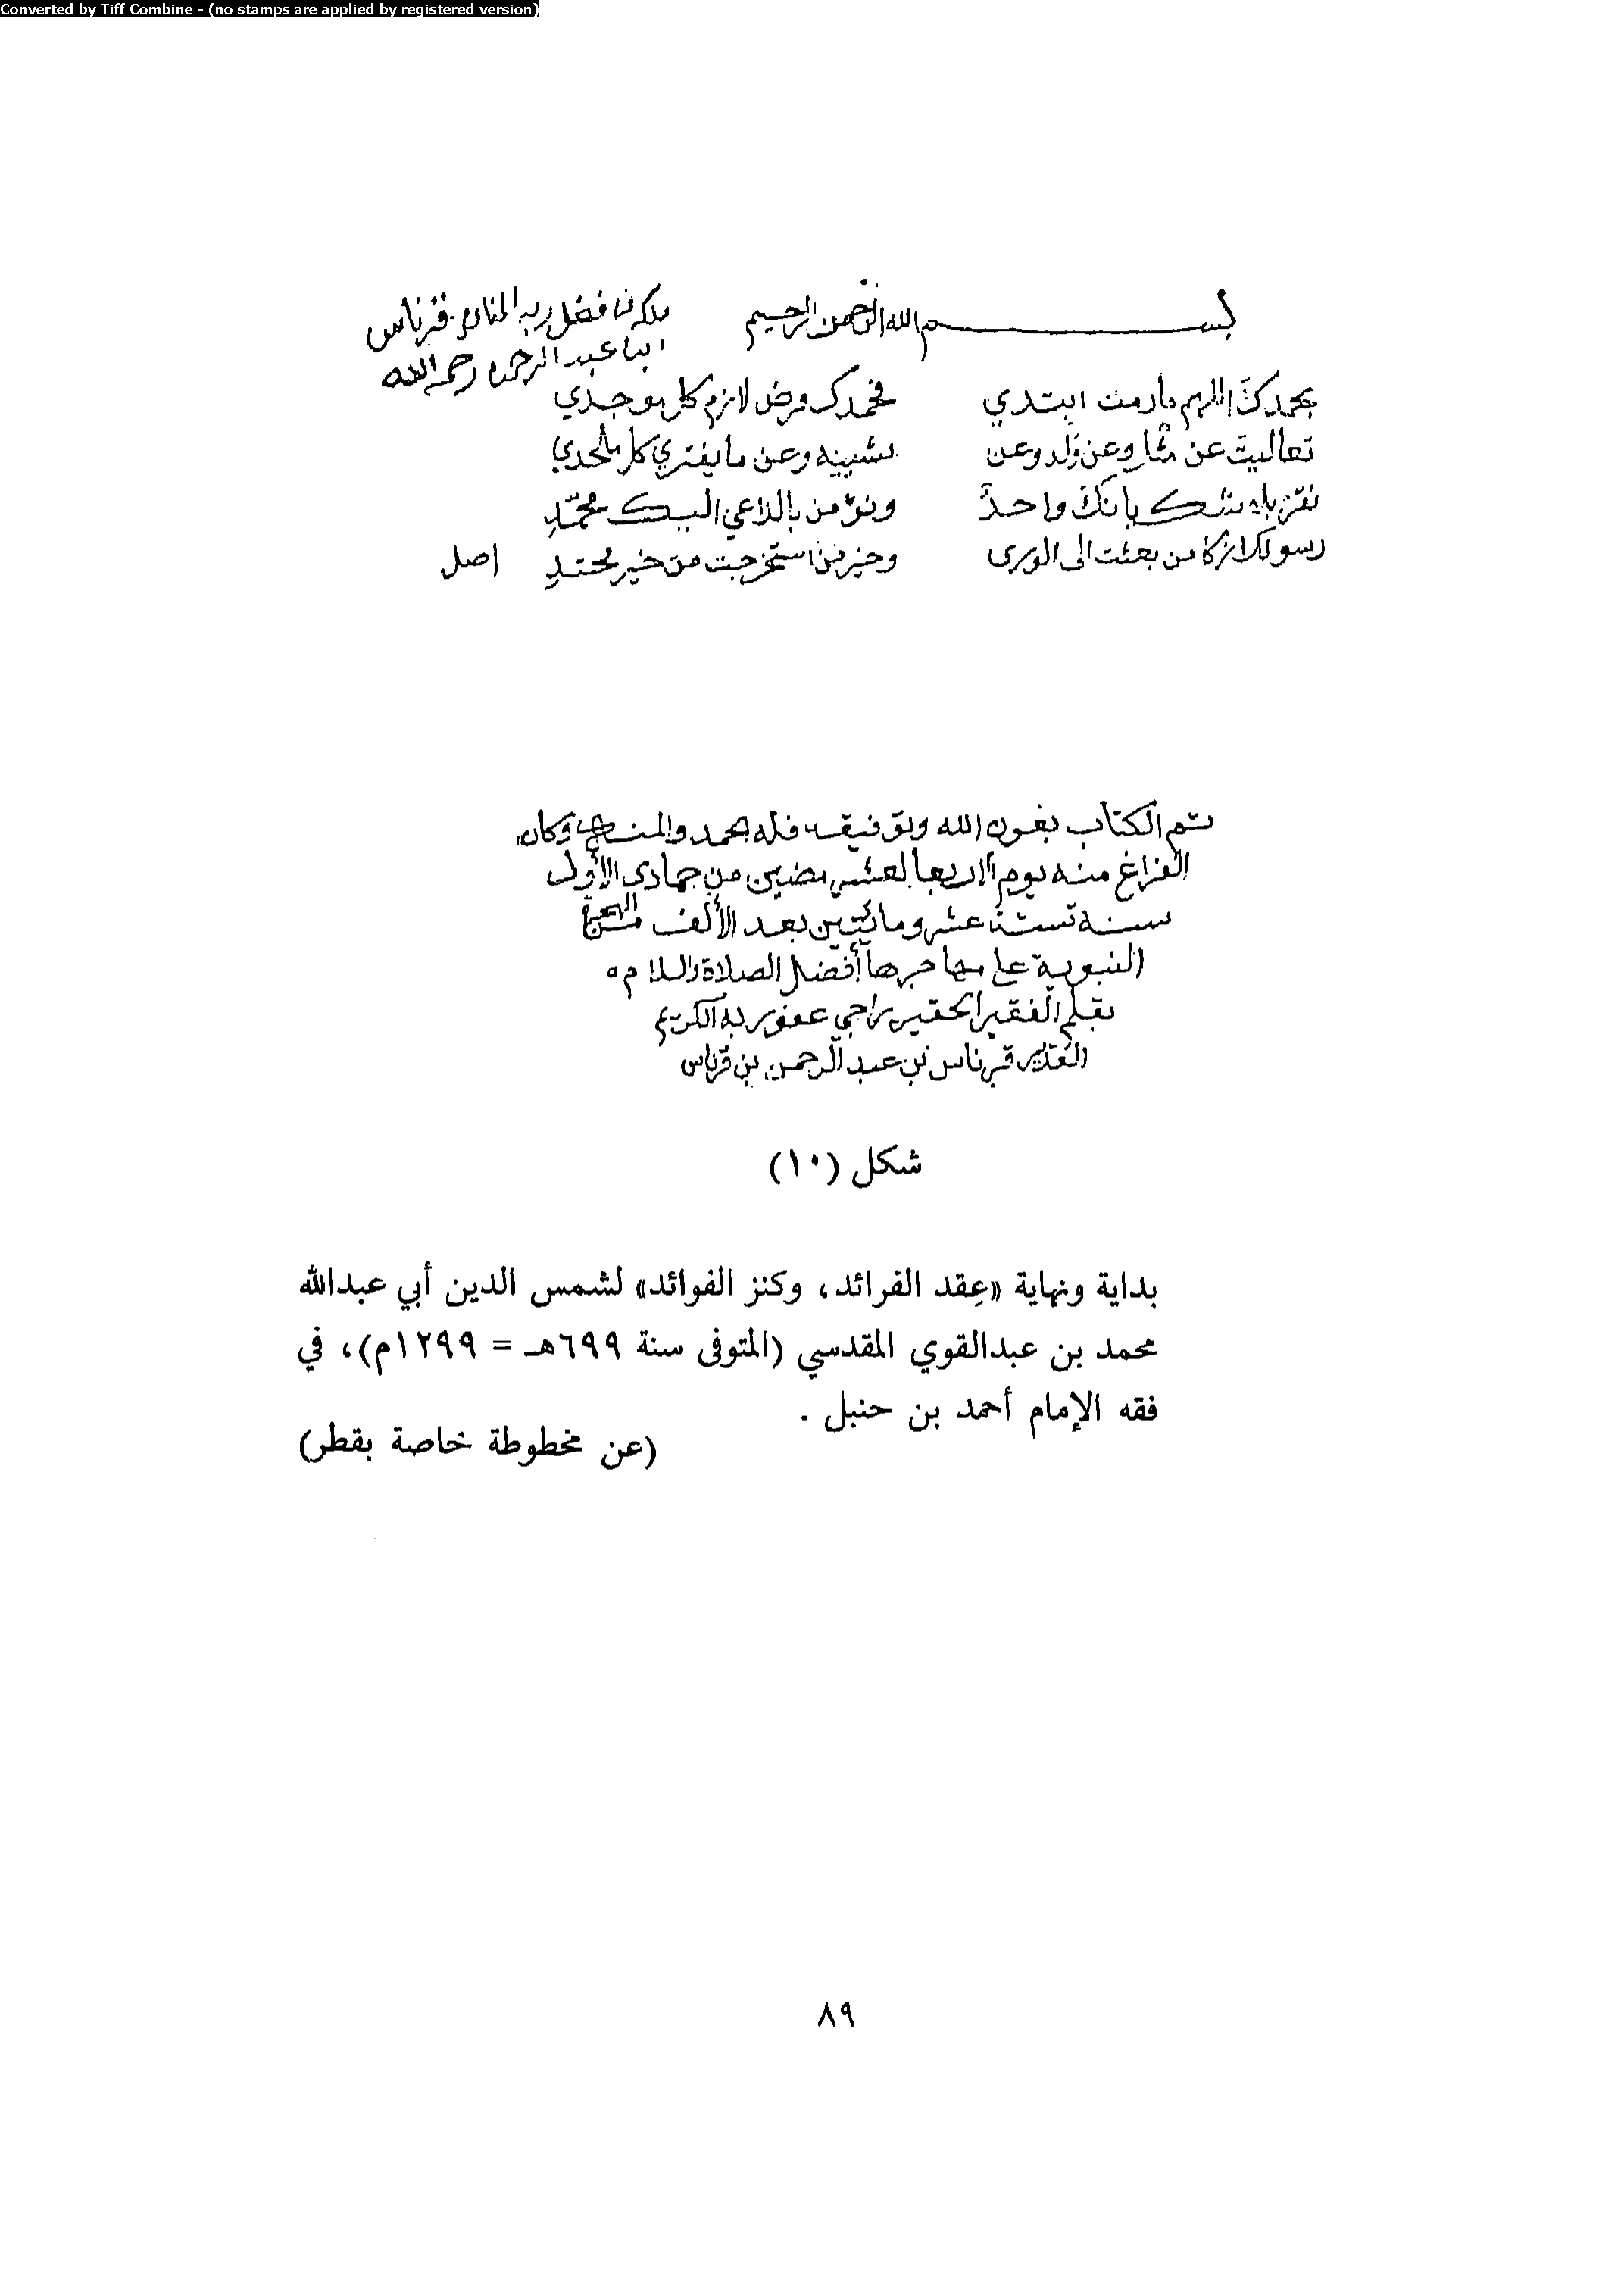 Converted by Tiff Combine - (no stamps are applied by registered version)
بسم الله الرحمن الرحيم
من فضل ربه المنان قرناس
عبد الرحمن رحمه الله
بحمدك اللهم ابتدي فحمدك فرض لازم كل موجدي
تعاليت عن مثل وعن ولد وعن تشبيه وعن ما يفتري كل ملحدي
نقر بلا شك بأنك واحدٌ ونؤمن بالداعي اليك محمّدٍ
رسولك ازكا من بعثت الى الورى وخير من استخرجت من خير محتدٍ اصل
تم الكتاب بعون الله وتوفيقه فله الحمد والمنه وكان
الفراغ منه يوم الاربعا لعشر مضين من جمادى الأول
سنة ستة عشر ومائتين بعد الألف من الهجرة
النبوية على مهاجرها أفضل الصلاة والسلام
بقلم الفقير الحقير راجي عفو ربه الكريم
القدير قرناس بن عبد الرحمن بن قرناس
شكل (١٠)
بداية ونهاية «عِقد الفرائد، وكنز الفوائد» لشمس الدين أبي عبدالله
محمد بن عبدالقوي المقدسي (المتوفى سنة ٦٩٩هـ = ١٢٩٩م)، في
فقه الإمام أحمد بن حنبل .
(عن مخطوطة خاصة بقطر)
٨٩